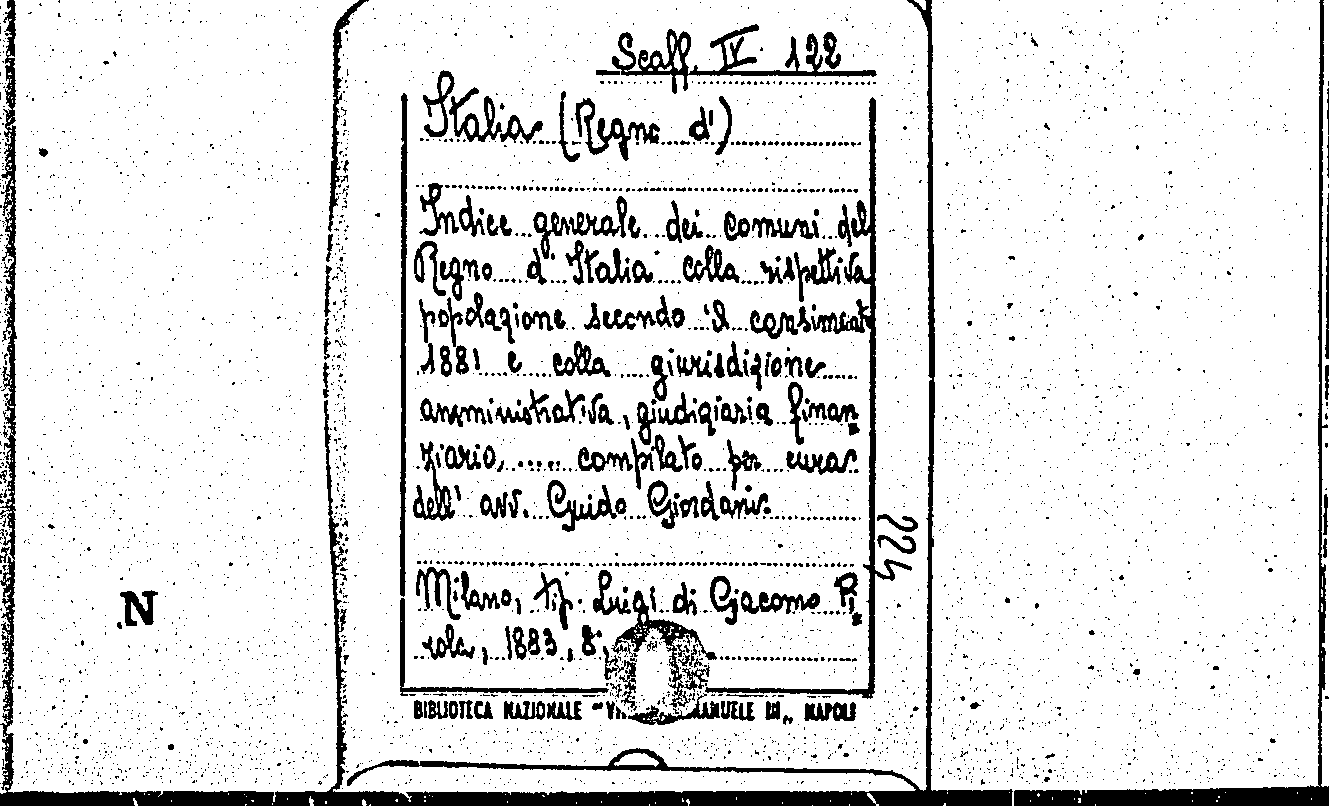 Scaff. IV. 122
Italia (Regno d')
Indice generale dei comuni del
Regno d'Italia colla rispettiva
popolazione secondo il censimento
1881 e colla giurisdizione
amministrativa, giudiziaria finan=
ziario, ..... compilato per cura
dell' avv. Guido Giordani.
224
Milano, tip. Luigi di Giacomo Pi=
rola, 1883, 8°,
N
BIBLIOTECA NAZIONALE "VI MANUELE III„ NAPOLI